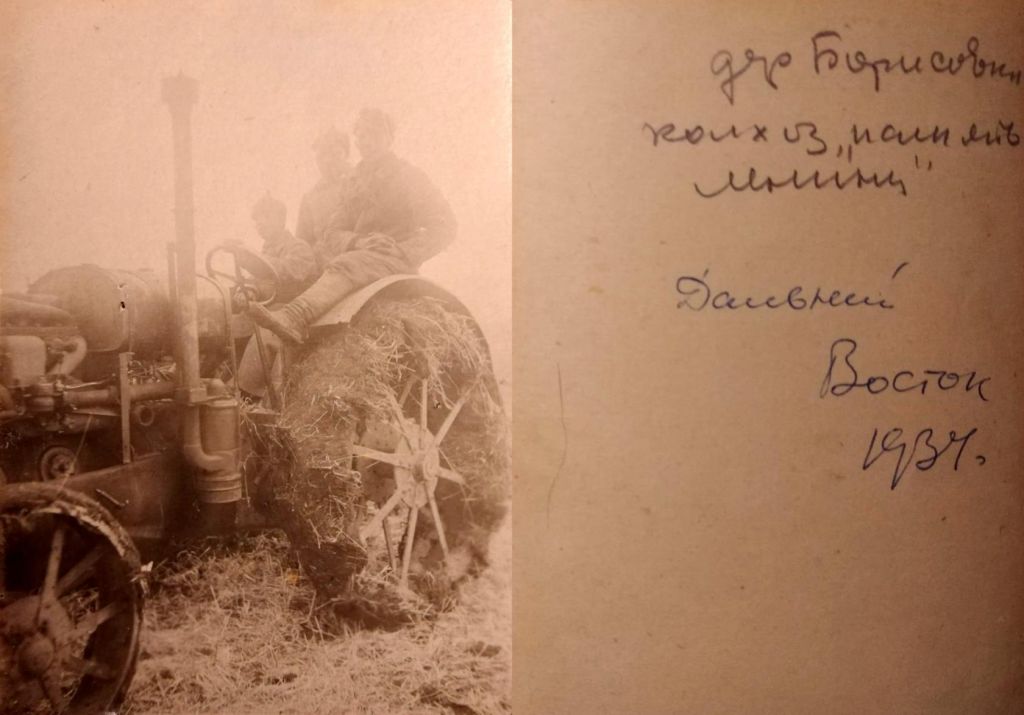 дер Борисовки
колхоз „память
Ленина"
Дальний
Восток
1934.